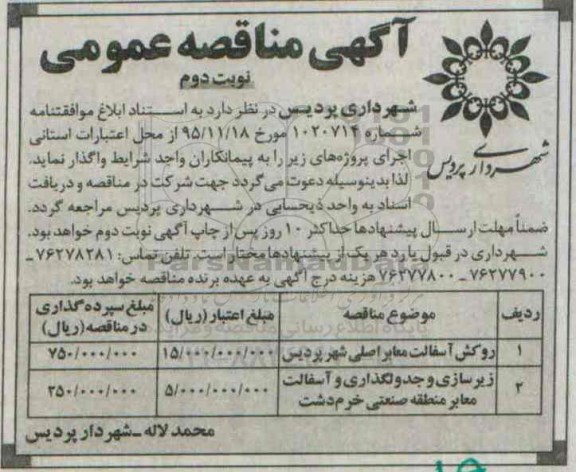 آگهی مناقصه عمومی
نوبت دوم
شهرداری پردیس
شهرداری پردیس در نظر دارد به استناد ابلاغ موافقتنامه
شماره ۱۰۲۰۷۱۴ مورخ ۹۵/۱۱/۱۸ از محل اعتبارات استانی
اجرای پروژه‌های زیر را به پیمانکاران واجد شرایط واگذار نماید.
لذا بدینوسیله دعوت می‌گردد جهت شرکت در مناقصه و دریافت
اسناد به واحد ذیحسابی در شهرداری پردیس مراجعه گردد.
ضمناً مهلت ارسال پیشنهادها حداکثر ۱۰ روز پس از چاپ آگهی نوبت دوم خواهد بود.
شهرداری در قبول یا رد هر یک از پیشنهادها مختار است. تلفن تماس: ۷۶۲۷۸۲۸۱ـ
۷۶۲۷۷۹۰۰ ـ ۷۶۲۷۷۸۰۰ هزینه درج آگهی به عهده برنده مناقصه خواهد بود.
ردیف موضوع مناقصه مبلغ اعتبار (ریال) مبلغ سپرده گذاری در مناقصه (ریال)
۱ روکش آسفالت معابر اصلی شهر پردیس ۱۵/۰۰۰/۰۰۰/۰۰۰ ۷۵۰/۰۰۰/۰۰۰
۲ زیرسازی و جدولگذاری و آسفالت معابر منطقه صنعتی خرم‌دشت ۵/۰۰۰/۰۰۰/۰۰۰ ۲۵۰/۰۰۰/۰۰۰
محمد لاله ـ شهردار پردیس